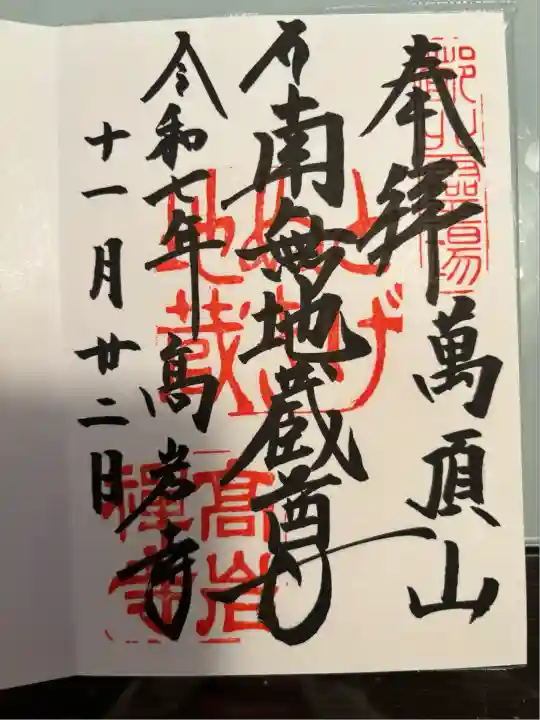 奉拝
萬頂山
南無地蔵尊
令和七年
髙岩寺
十一月廿二日
とげ
ぬき
地蔵
髙岩
禅寺